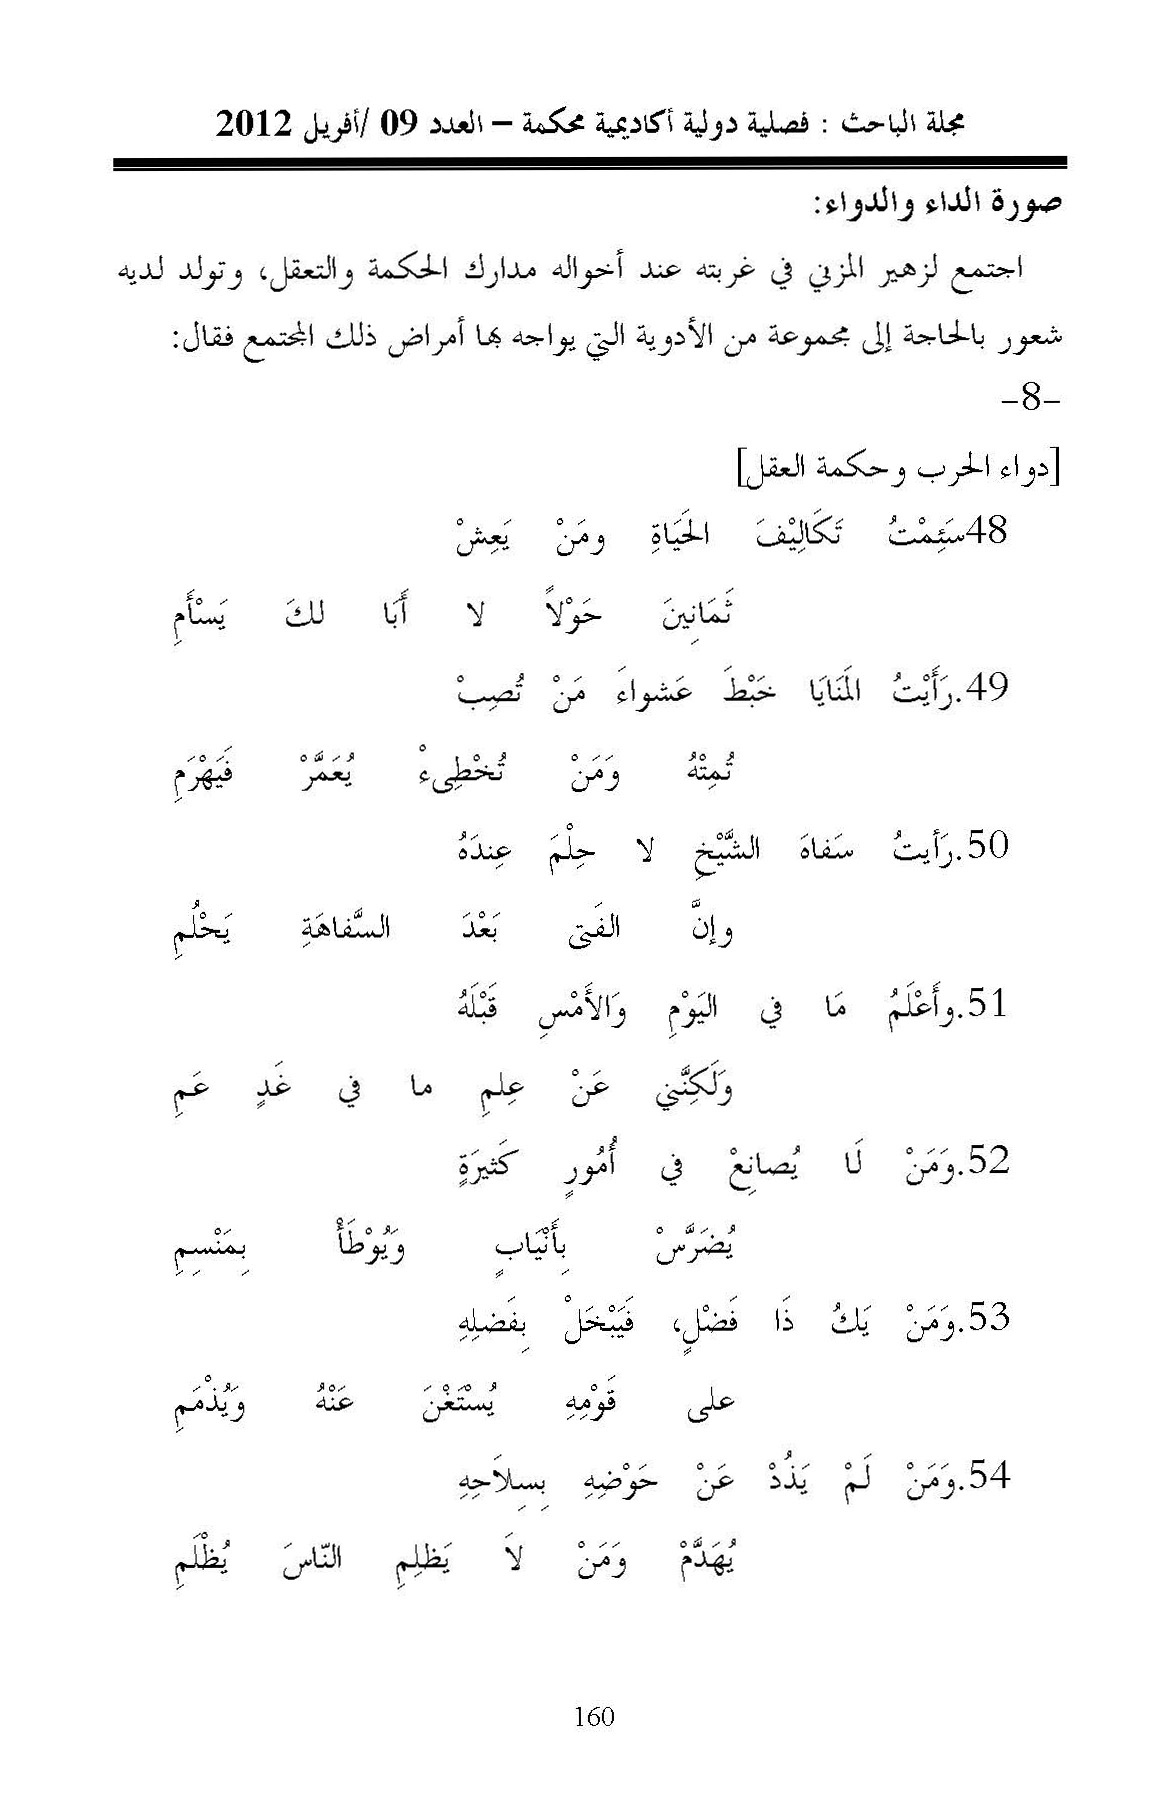 مجلة الباحث : فصلية دولية أكاديمية محكمة – العدد 09 /أفريل 2012
صورة الداء والدواء:
اجتمع لزهير المزني في غربته عند أخواله مدارك الحكمة والتعقل، وتولد لديه
شعور بالحاجة إلى مجموعة من الأدوية التي يواجه بها أمراض ذلك المجتمع فقال:
–8–
[دواء الحرب وحكمة العقل]
48سَئِمْتُ تَكَالِيْفَ الحَيَاةِ ومَنْ يَعِشْ
ثَمَانِينَ حَوْلاً لا أَبَا لكَ يَسْأَمِ
49.رَأَيْتُ المَنَايَا خَبْطَ عَشواءَ مَنْ تُصِبْ
تُمِتْهُ وَمَنْ تُخْطِىءْ يُعَمَّرْ فَيَهْرَمِ
50.رَأيتُ سَفاهَ الشَّيْخِ لا حِلْمَ عِندَهُ
وإنَّ الفَتى بَعْدَ السَّفاهَةِ يَحْلُمِ
51.وأَعْلَمُ مَا في اليَوْمِ وَالأَمْسِ قَبْلَهُ
وَلَكِنَّني عَنْ عِلمِ ما في غَدٍ عَمِ
52.وَمَنْ لَا يُصانِعْ في أُمُورٍ كَثيرَةٍ
يُضَرَّسْ بِأَنْيَابٍ وَيُوْطَأْ بِمَنْسِمِ
53.وَمَنْ يَكُ ذَا فَضْلٍ، فَيَبْخَلْ بِفَضلِهِ
على قَوْمِهِ يُسْتَغْنَ عَنْهُ وَيُذْمَمِ
54.وَمَنْ لَمْ يَذُدْ عَنْ حَوْضِهِ بِسِلاَحِهِ
يُهَدَّمْ وَمَنْ لاَ يَظلِمِ النّاسَ يُظْلَمِ
160